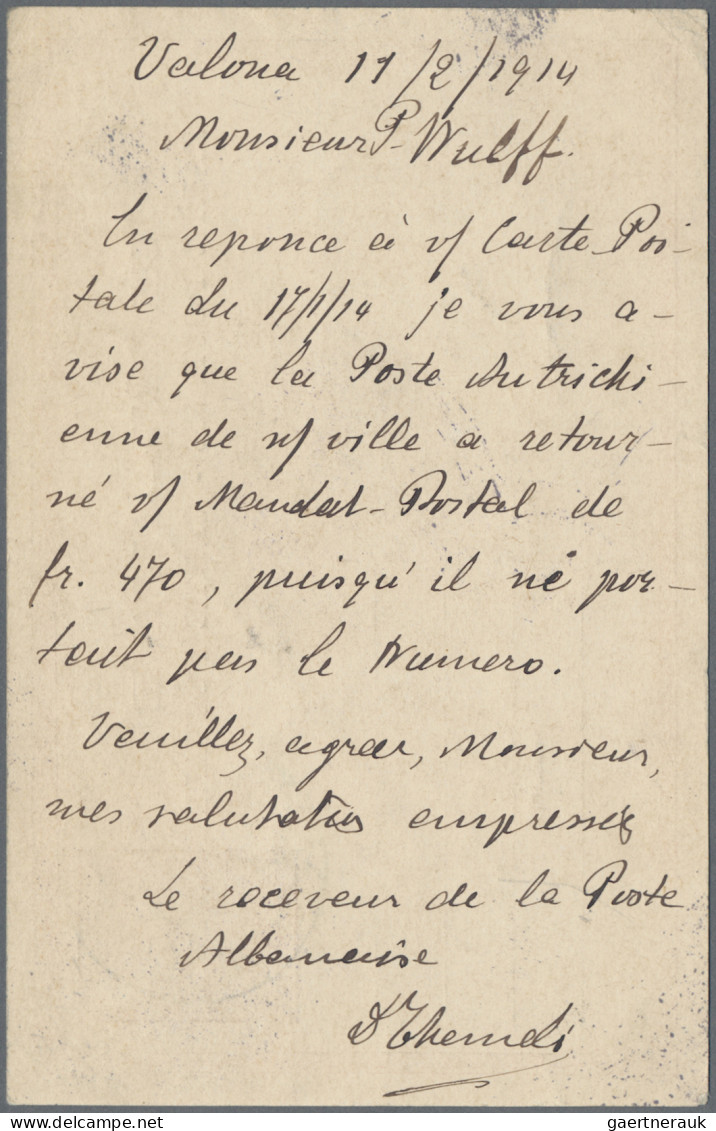 Valona 11/2/1914
Monsieur P. Wulff.
En reponce à v/ Carte Pos-
tale du 17/1/14 je vous a-
vise que la Poste Autrichi-
enne de n/ ville a retour-
né v/ Mandat-Postal de
fr. 470, puisqu'il né por-
tait pas le Numero.
Veuillez, agreer, Monsieur,
mes salutations empressez
Le receveur de la Poste
Albanaise
gaertnerauk